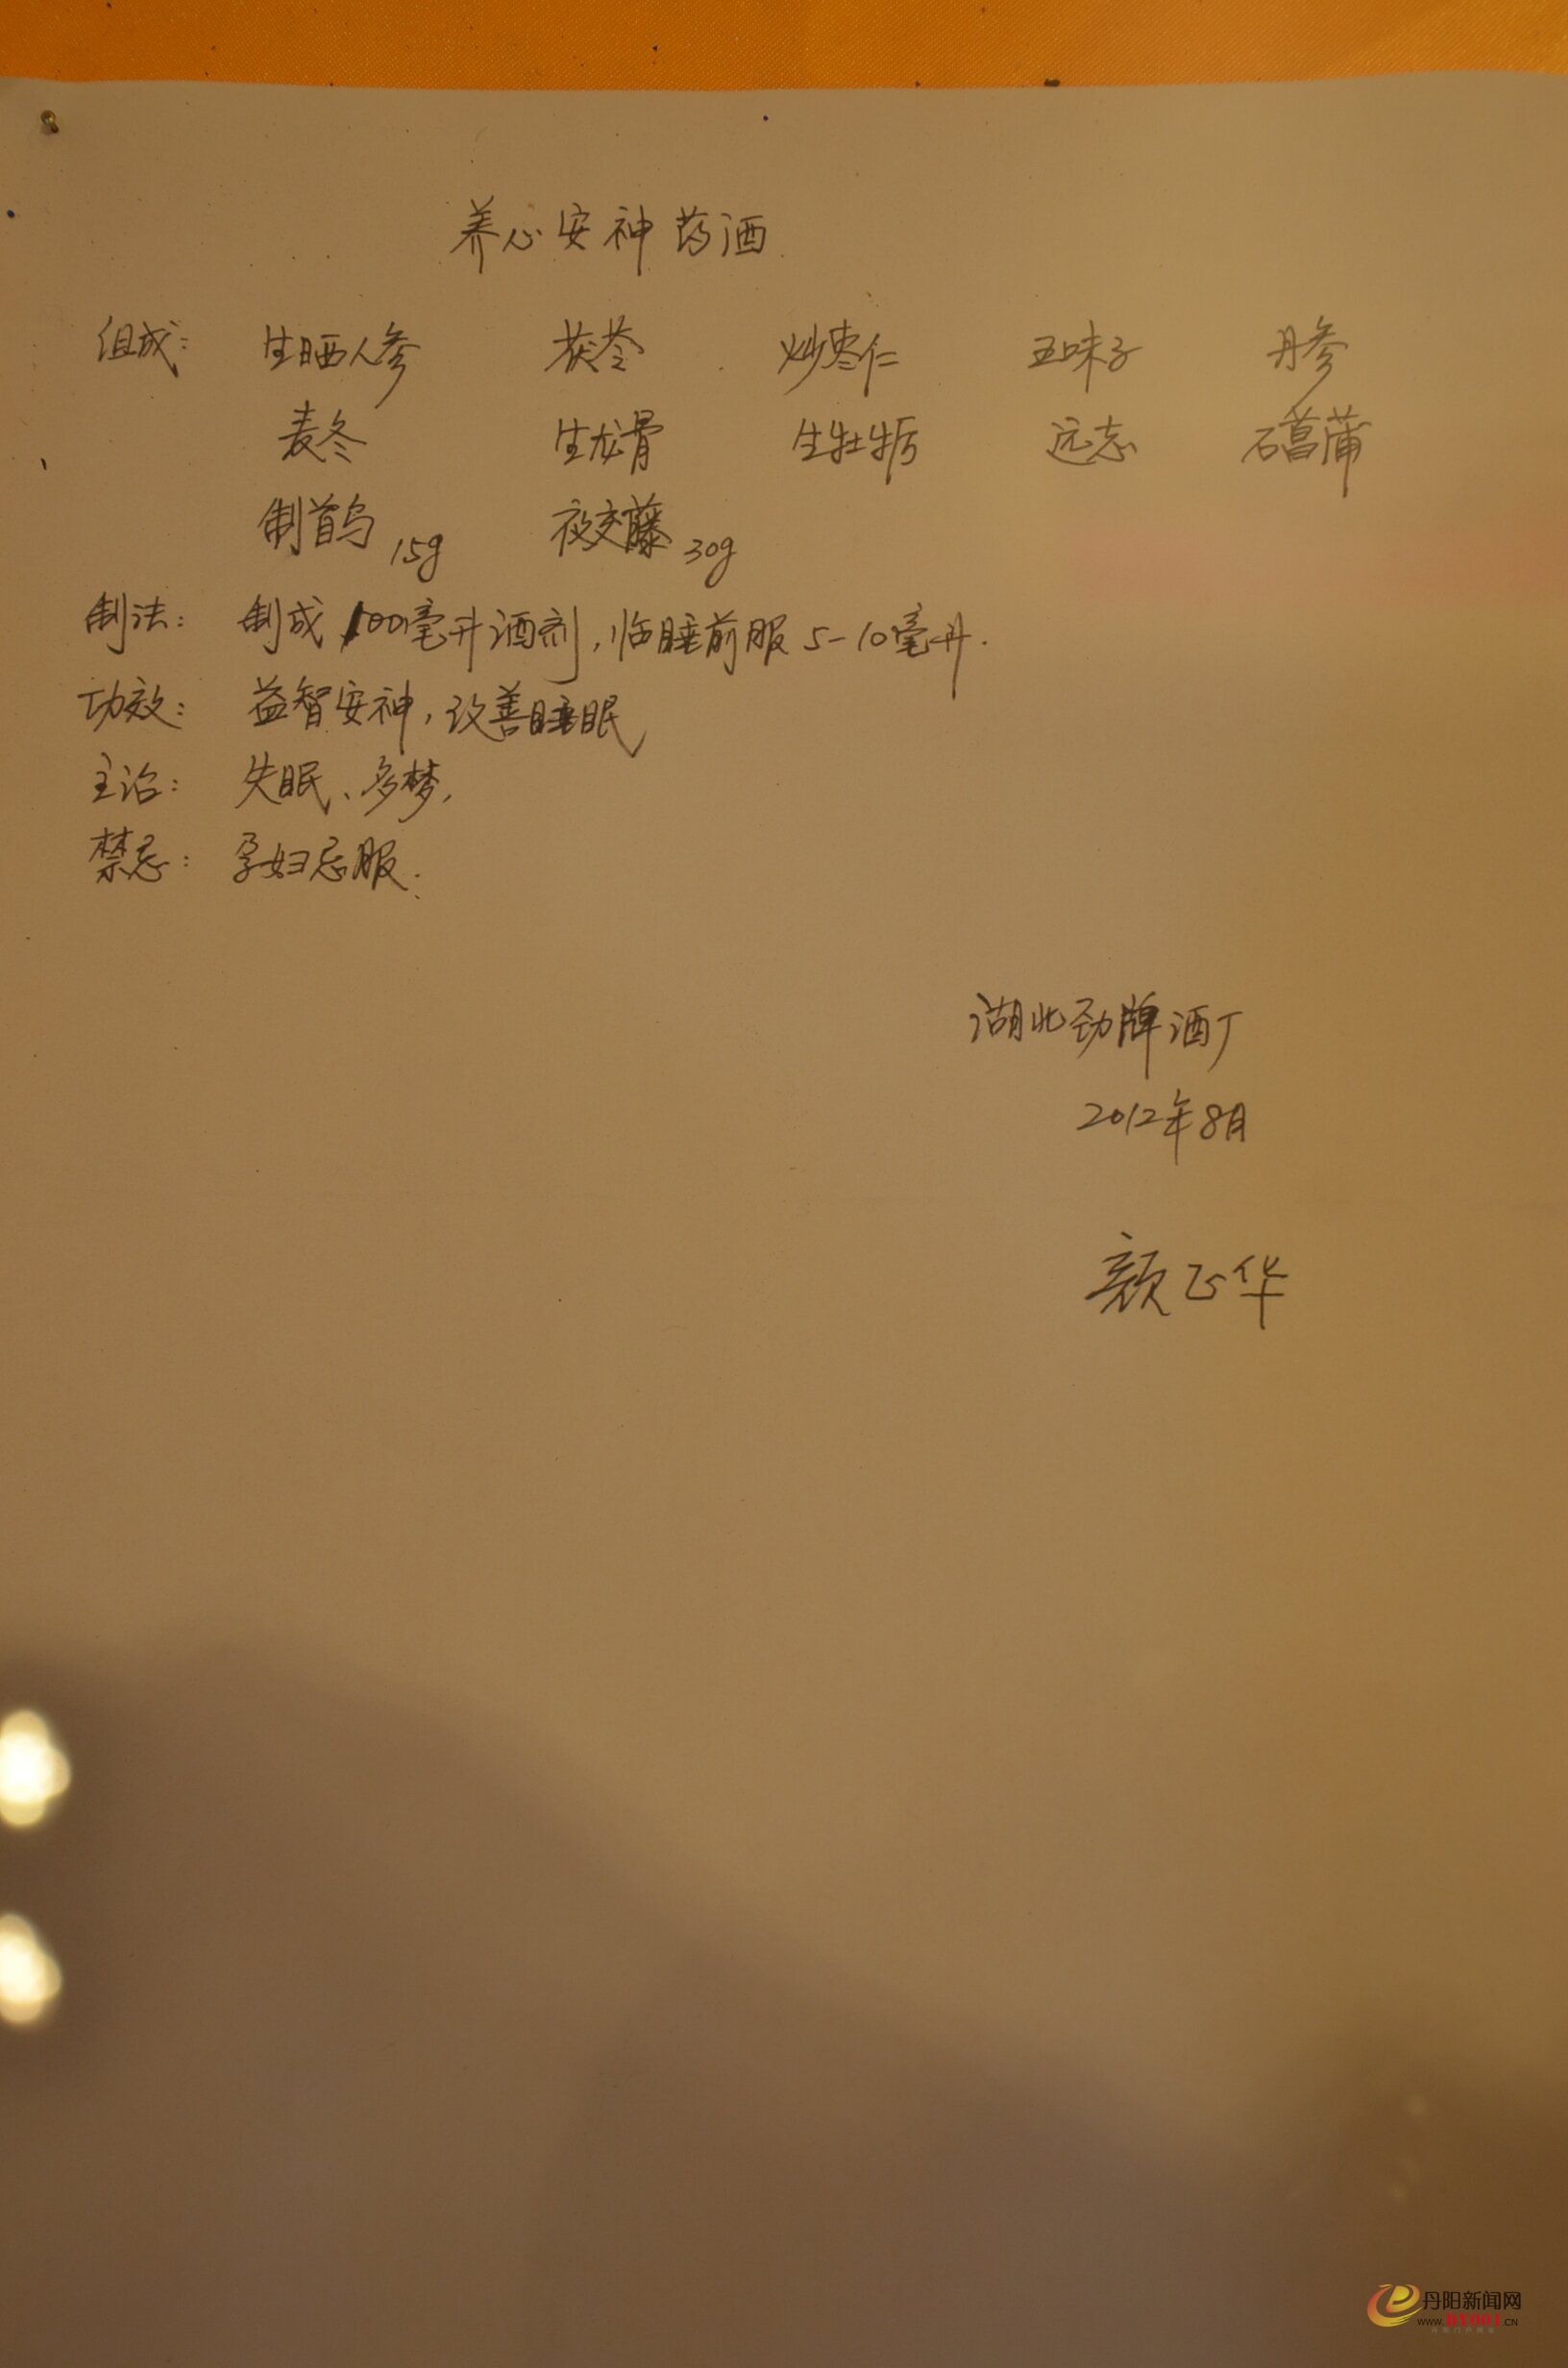 养心安神药酒
组成: 生晒人参 茯苓 炒枣仁 五味子 丹参
麦冬 生龙骨 生牡蛎 远志 石菖蒲
制首乌 15g 夜交藤 30g
制法: 制成100毫升酒剂,临睡前服5-10毫升.
功效: 益智安神,改善睡眠
主治: 失眠、多梦,
禁忌: 孕妇忌服.
湖北劲牌酒厂
2012年8月
颜正华
丹阳新闻网
WWW.DY001.CN